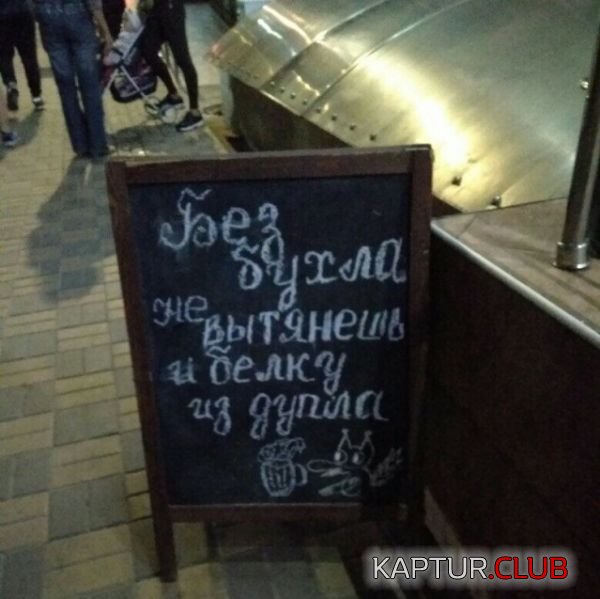 Без
бухла
не
вытянешь
и белку
из дупла
KAPTUR.CLUB